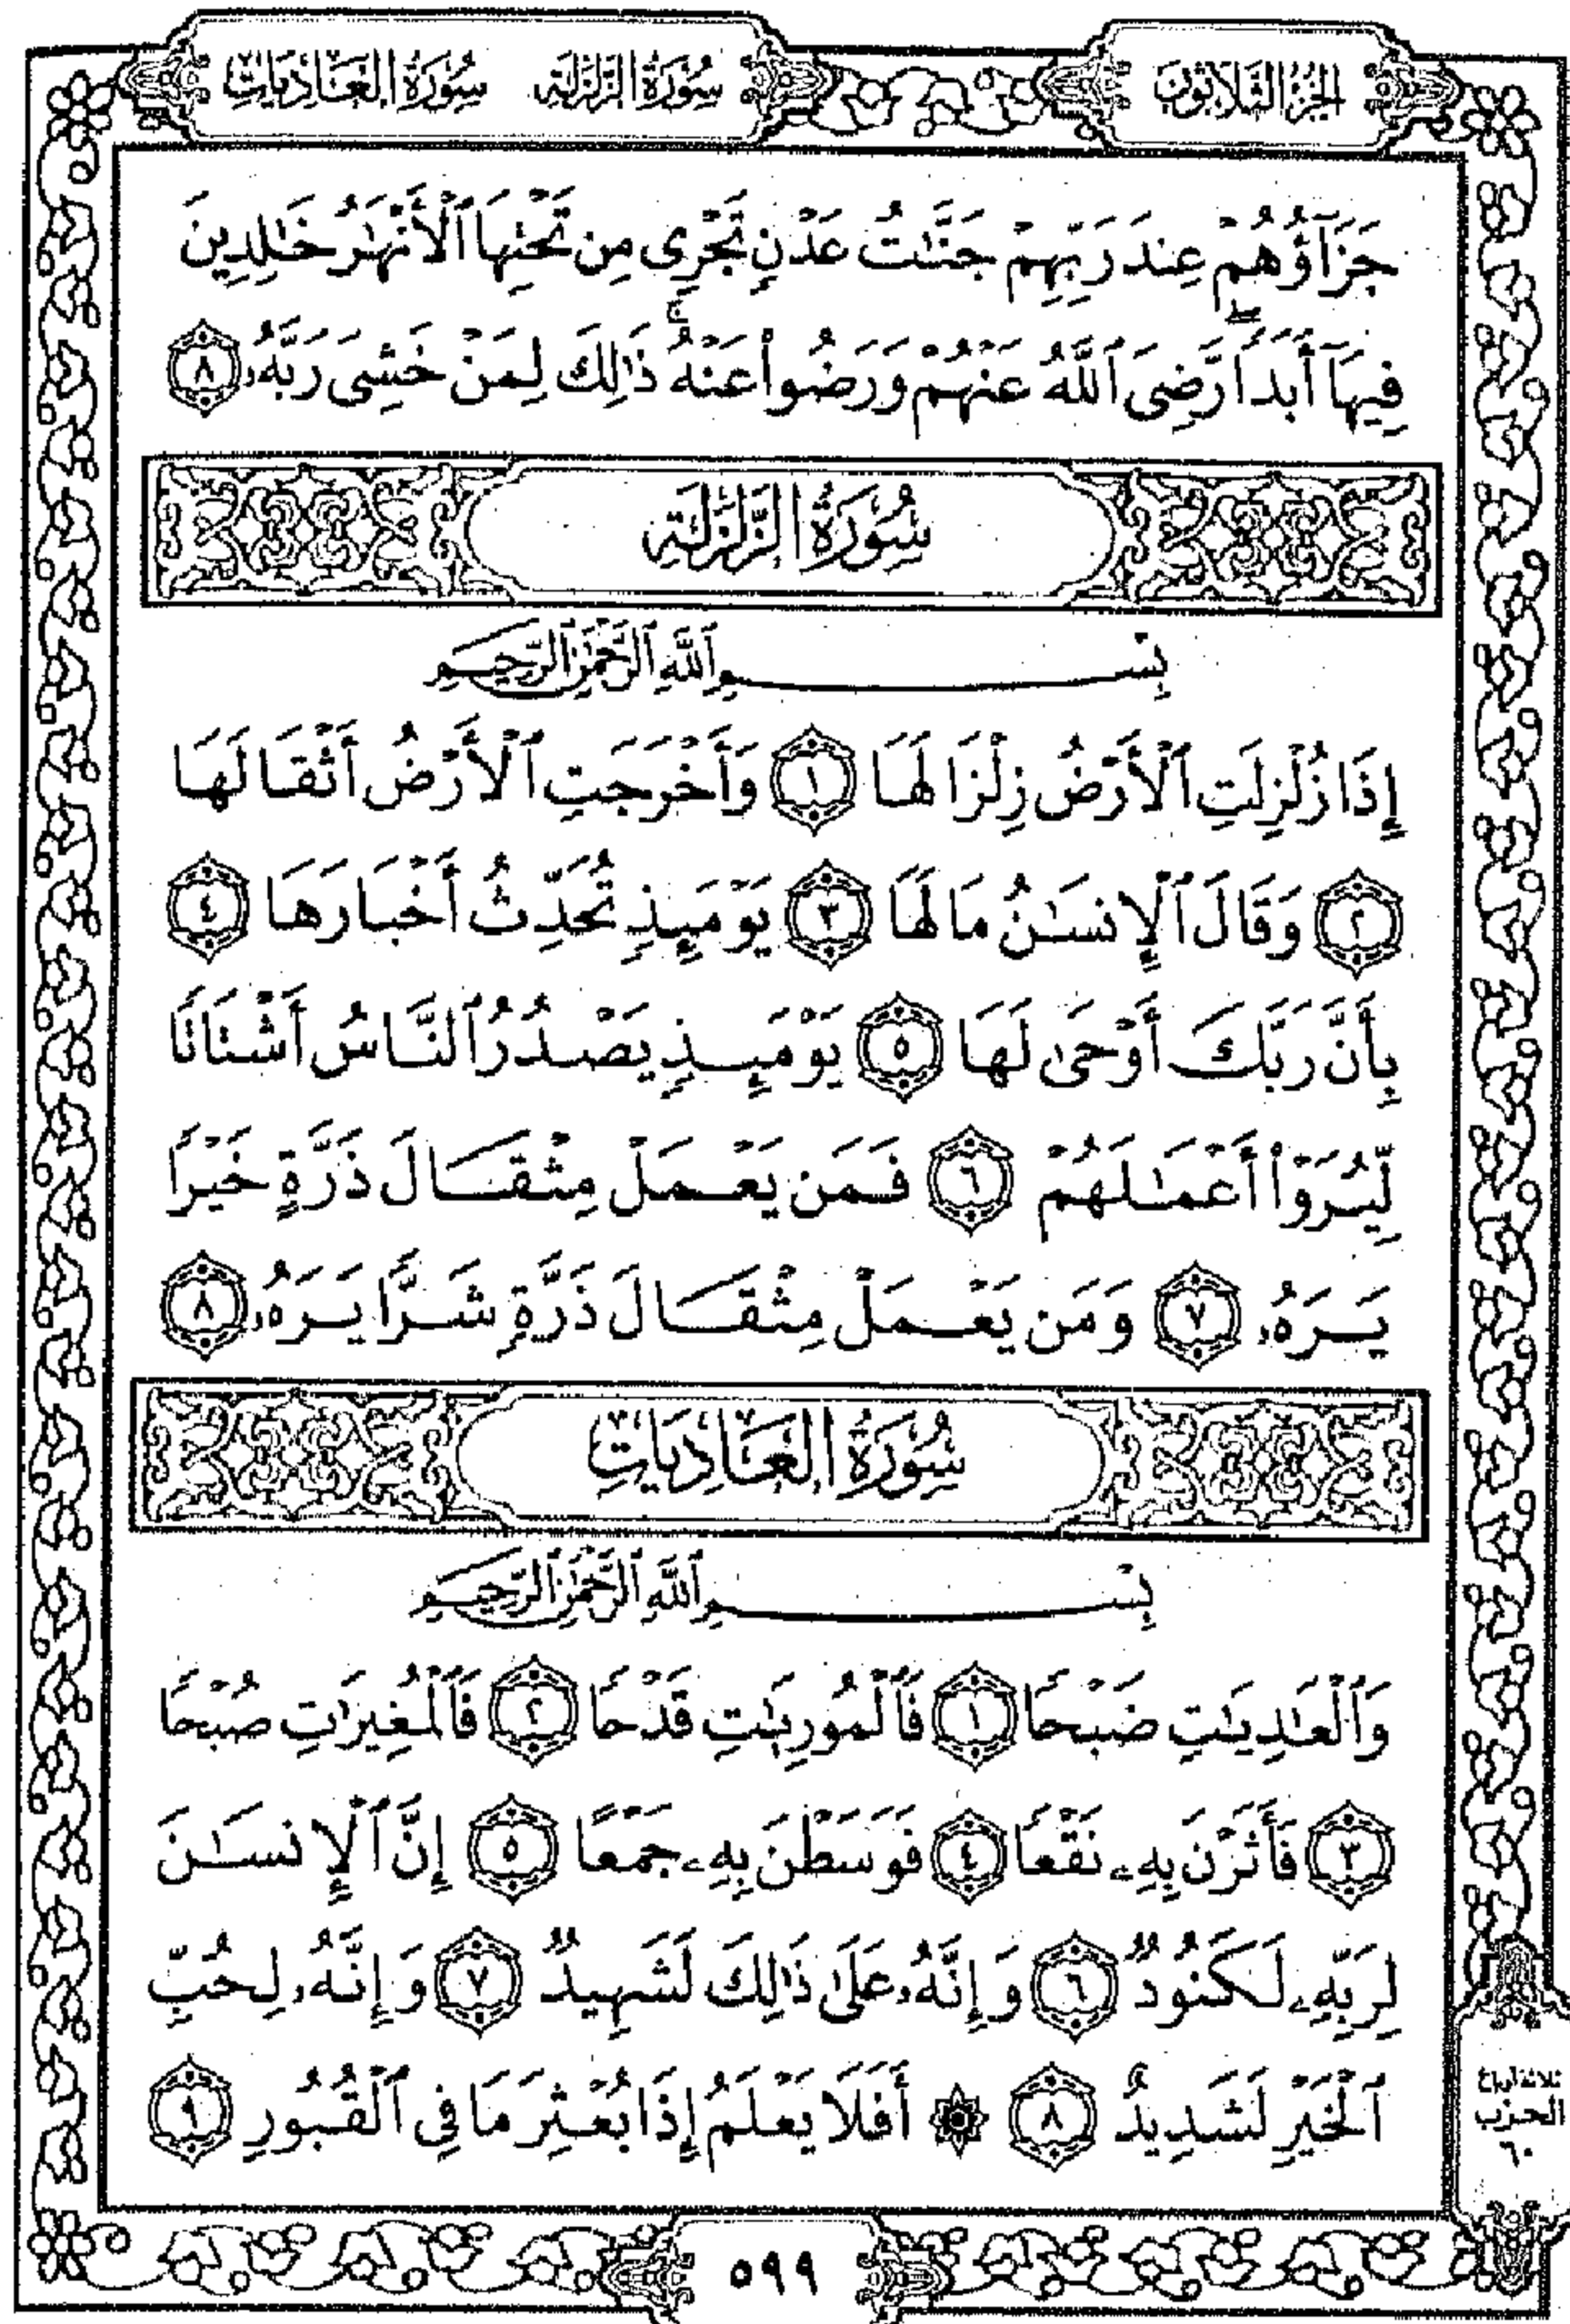 الجزء الثلاثون
سورة الزلزلة سورة العاديات
جَزَآؤُهُمْ عِندَ رَبِّهِمْ جَنَّٰتُ عَدْنٍ تَجْرِى مِن تَحْتِهَا ٱلْأَنْهَٰرُ خَٰلِدِينَ
فِيهَآ أَبَدًا ۖ رَّضِىَ ٱللَّهُ عَنْهُمْ وَرَضُوا۟ عَنْهُ ۚ ذَٰلِكَ لِمَنْ خَشِىَ رَبَّهُۥ ٨
سُورَةُ الزَّلْزَلَةِ
بِسْمِ ٱللَّهِ ٱلرَّحْمَٰنِ ٱلرَّحِيمِ
إِذَا زُلْزِلَتِ ٱلْأَرْضُ زِلْزَالَهَا ١ وَأَخْرَجَتِ ٱلْأَرْضُ أَثْقَالَهَا
٢ وَقَالَ ٱلْإِنسَٰنُ مَا لَهَا ٣ يَوْمَئِذٍ تُحَدِّثُ أَخْبَارَهَا ٤
بِأَنَّ رَبَّكَ أَوْحَىٰ لَهَا ٥ يَوْمَئِذٍ يَصْدُرُ ٱلنَّاسُ أَشْتَاتًا
لِّيُرَوْا۟ أَعْمَٰلَهُمْ ٦ فَمَن يَعْمَلْ مِثْقَالَ ذَرَّةٍ خَيْرًا
يَرَهُۥ ٧ وَمَن يَعْمَلْ مِثْقَالَ ذَرَّةٍ شَرًّا يَرَهُۥ ٨
سُورَةُ العَادِيَاتِ
بِسْمِ ٱللَّهِ ٱلرَّحْمَٰنِ ٱلرَّحِيمِ
وَٱلْعَٰدِيَٰتِ ضَبْحًا ١ فَٱلْمُورِيَٰتِ قَدْحًا ٢ فَٱلْمُغِيرَٰتِ صُبْحًا
٣ فَأَثَرْنَ بِهِۦ نَقْعًا ٤ فَوَسَطْنَ بِهِۦ جَمْعًا ٥ إِنَّ ٱلْإِنسَٰنَ
لِرَبِّهِۦ لَكَنُودٌ ٦ وَإِنَّهُۥ عَلَىٰ ذَٰلِكَ لَشَهِيدٌ ٧ وَإِنَّهُۥ لِحُبِّ
ٱلْخَيْرِ لَشَدِيدٌ ٨ ۞ أَفَلَا يَعْلَمُ إِذَا بُعْثِرَ مَا فِى ٱلْقُبُورِ ٩
ثلاثة أرباع
الحزب
٦٠
٥٩٩